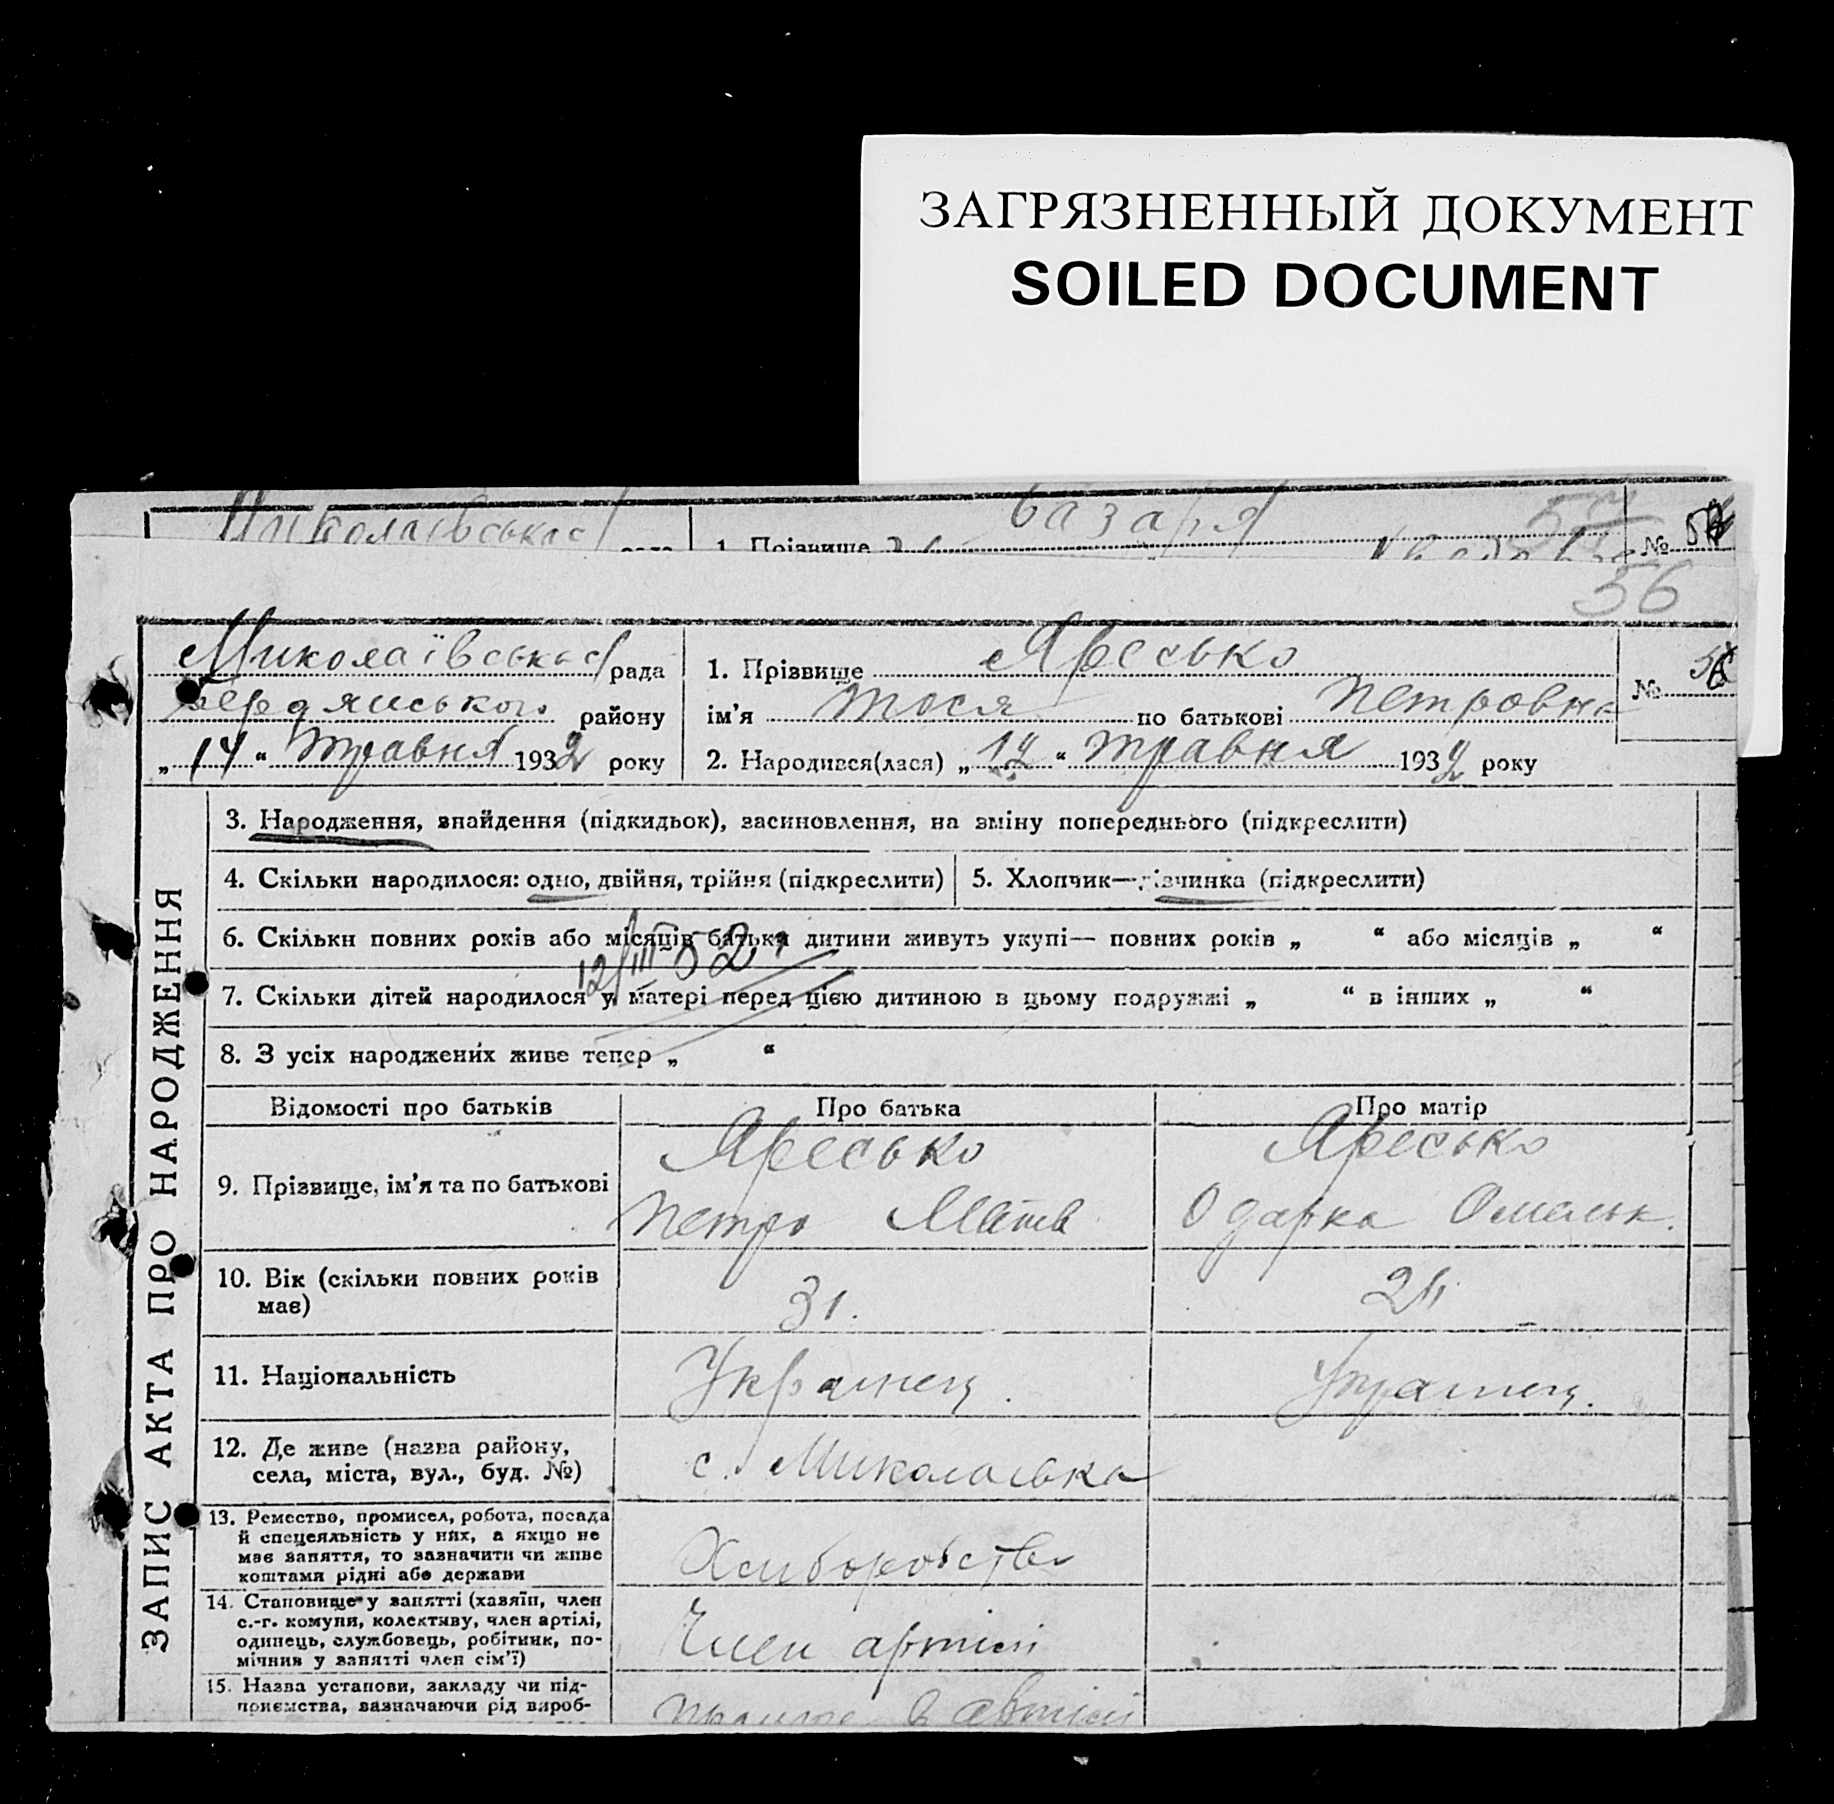 ЗАГРЯЗНЕННЫЙ ДОКУМЕНТ
SOILED DOCUMENT
Миколаївська
1. Прізвище базаря
57
№
56
Миколаївська рада
Бердянського району
„14“ травня 1932 року
1. Прізвище Яресько
ім'я Тося по батькові Петровна
№
2. Народився(лася) „14“ травня 1932 року
ЗАПИС АКТА ПРО НАРОДЖЕННЯ
3. Народження, знайдення (підкидьок), засиновлення, на зміну попереднього (підкреслити)
4. Скільки народилося: одно, двійня, трійня (підкреслити)
5. Хлопчик—дівчинка (підкреслити)
6. Скільки повних років або місяців батьки дитини живуть укупі— повних років „ “ або місяців „ “
12/III 52
7. Скільки дітей народилося у матері перед цією дитиною в цьому подружжі „ “ в інших „ “
8. З усіх народжених живе тепер „ “
Відомості про батьків
Про батька
Про матір
9. Прізвище, ім'я та по батькові
Яресько
Петро Матв
Яресько
Одарка Омельк.
10. Вік (скільки повних років
має)
31.
24
11. Національність
Українец.
Українец.
12. Де живе (назва району,
села, міста, вул., буд. №)
с. Миколаївка
13. Ремество, промисел, робота, посада
й спецеяльність у них, а якщо не
має заняття, то зазначити чи живе
коштами рідні або держави
Хлиборобство
14. Становище у занятті (хазяїн, член
с.-г. комуни, колективу, член артілі,
одинець, службовець, робітник, по-
мічник у занятті член сім'ї)
Член артілі
15. Назва установи, закладу чи під-
приємства, зазначаючи рід вироб-
працює в артілі